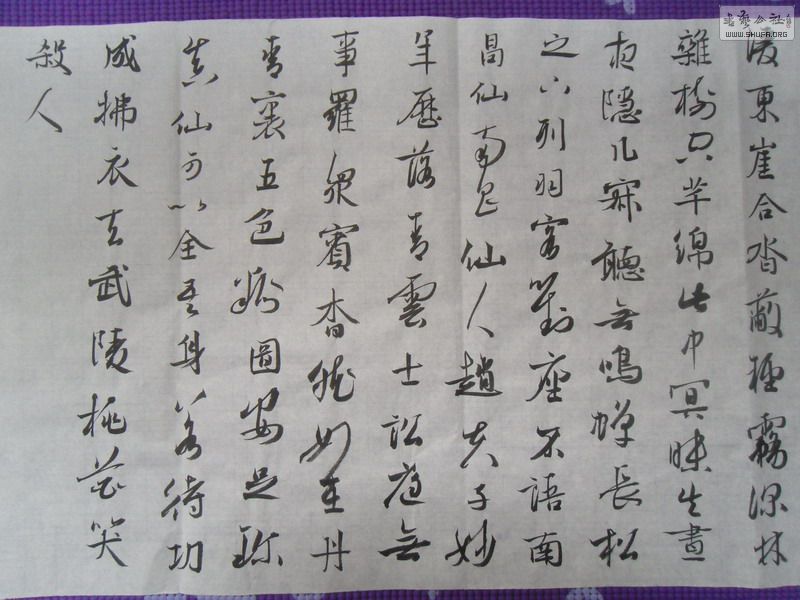 湲東崖合沓蔽輕霧深林
雜樹空芊綿此中冥昧失晝
夜隱几寂聽無鳴蟬長松
之下列羽客對座不語南
昌仙南昌仙人趙夫子妙
年歷落青雲士訟庭無
事羅眾賓杳然如在丹
青裏五色粉圖安足珍
真仙可以全吾身若待功
成拂衣去武陵桃花笑
殺人
書藝公社
WWW.SHUFA.ORG